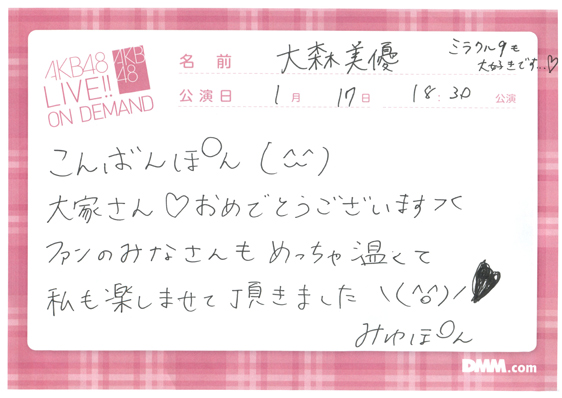 AKB48
LIVE!!
ON DEMAND
AKB
48
名前 大森美優
ミラクル9も
大好きです...♡
公演日 1月 17日 18:30 公演
こんばんぽーん (^^)
大家さん♡おめでとうございます
ファンのみなさんも めっちゃ温くて
私も楽しませて頂きました \(^o^)/
みゆぽん
DMM.com